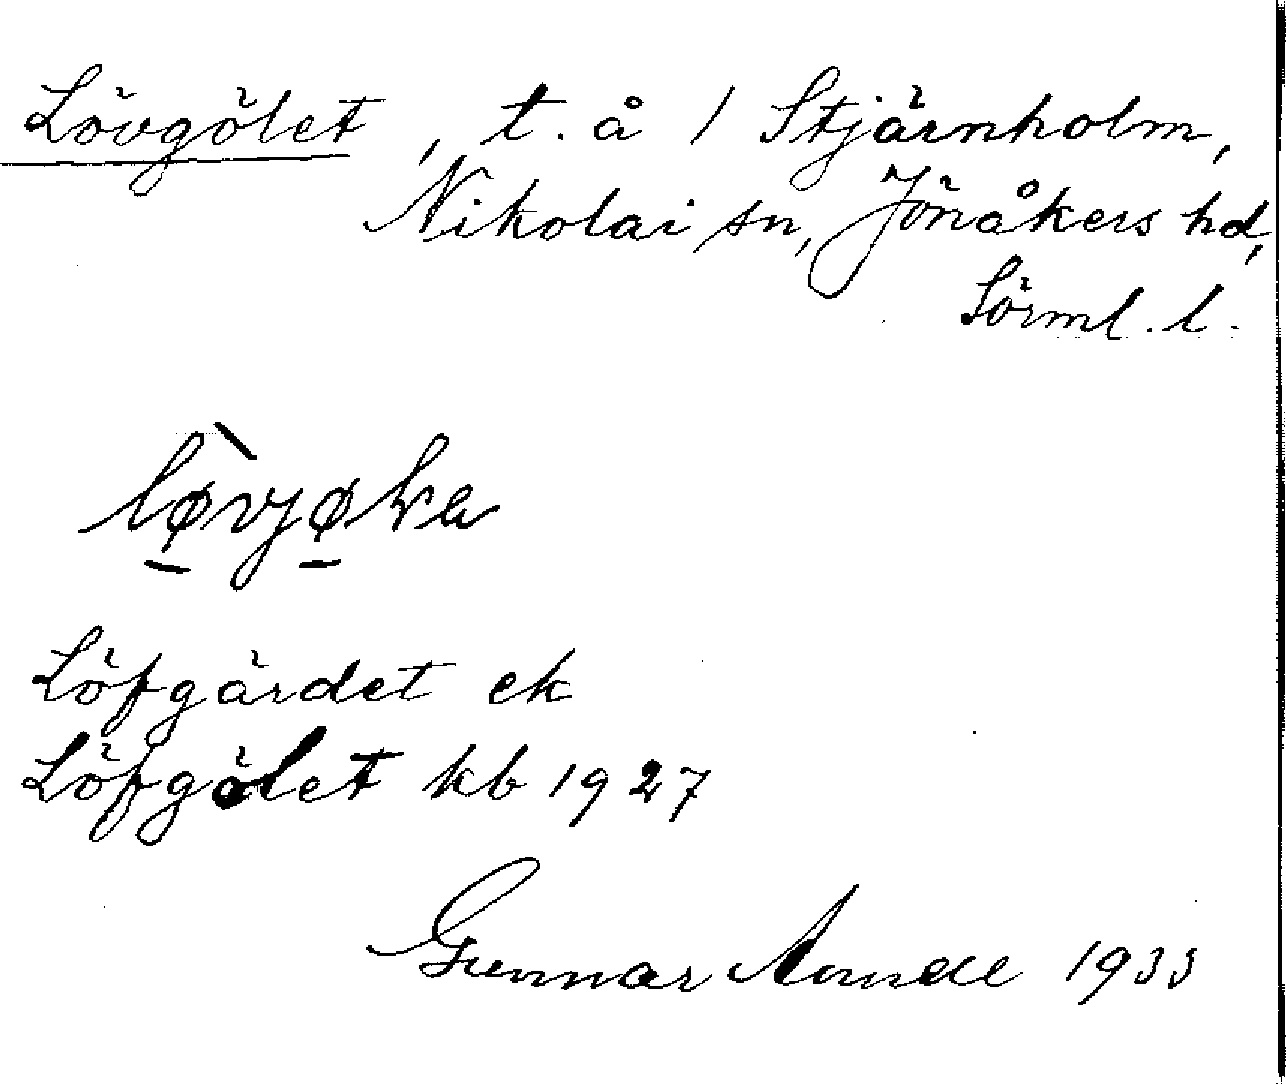 Lövgölet, t. å 1 Stjärnholm,
Nikolai sn, Jönåkers hd,
Sörml. l.
Löfgärdet ek
Löfgölet kb 1927
Gunnar 1933